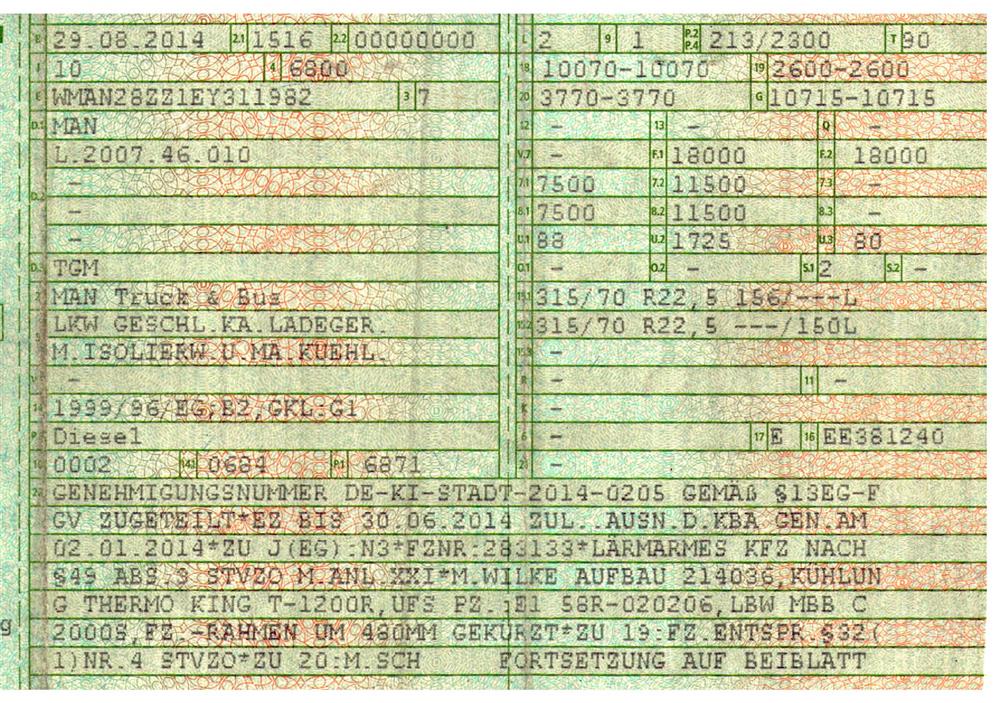 B 29.08.2014 2.1 1516 2.2 00000000
J 10 4 6800
E WMAN28ZZ1EY311982 3 7
D.1 MAN
L.2007.46.010
D.2 –
–
–
D.3 TGM
2 MAN Truck & Bus
5 LKW GESCHL.KA.LADEGER.
M.ISOLIERW.U.MA.KUEHL.
V.9 –
14 1999/96/EG;B2,GKL:G1
P.3 Diesel
10 0002 14.1 0684 P.1 6871
L 2 9 1 P.2 P.4 213/2300 T 90
18 10070-10070 19 2600-2600
20 3770-3770 G 10715-10715
12 – 13 – Q –
V.7 – F.1 18000 F.2 18000
7.1 7500 7.2 11500 7.3 –
8.1 7500 8.2 11500 8.3 –
U.1 88 U.2 1725 U.3 80
O.1 – O.2 – S.1 2 S.2 –
15.1 315/70 R22,5 156/---L
15.2 315/70 R22,5 ---/150L
15.3 –
R – 11 –
K –
6 – 17 E 16 EE381240
21 –
22 GENEHMIGUNGSNUMMER DE-KI-STADT-2014-0205 GEMÄß §13EG-F
GV ZUGETEILT*EZ BIS 30.06.2014 ZUL..AUSN.D.KBA GEN.AM
02.01.2014*ZU J(EG):N3*FZNR:283133*LÄRMARMES KFZ NACH
§49 ABS.3 STVZO M.ANL.XXI*M.WILKE AUFBAU 214036,KÜHLUN
G THERMO KING T-1200R,UFS PZ.:E1 58R-020206,LBW MBB C
2000S,FZ.-RAHMEN UM 480MM GEKÜRZT*ZU 19:FZ.ENTSPR.§32(
1)NR.4 STVZO*ZU 20:M.SCH FORTSETZUNG AUF BEIBLATT
g